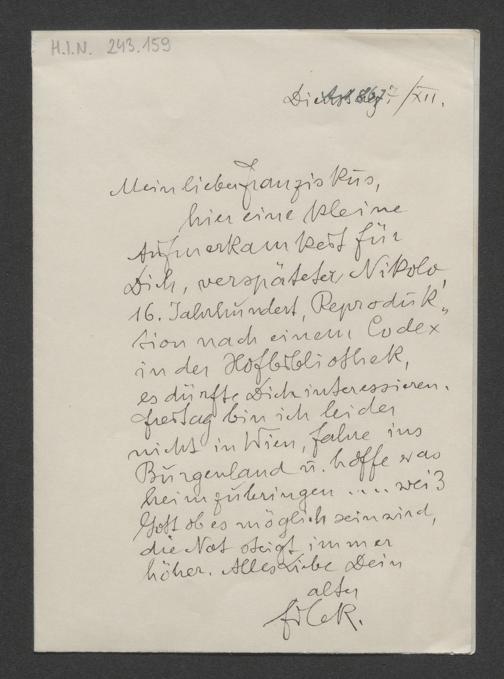 H.I.N. 243.159
/XII.
Mein lieber Franziskus,
hier eine kleine
Aufmerkamkeit für
Dich, verspäteter Nikolo,
16. Jahrhundert, Reproduk„
tion nach einem Codex
in der Hofbibliothek,
es dürfte Dich interessieren.
Freitag bin ich leider
nicht in Wien, fahre ins
Burgenland u. hoffe was
heimzubringen .... weiß
Gott ob es möglich sein wird,
die Not steigt immer
höher. Alles Liebe Dein
alter
Filek.